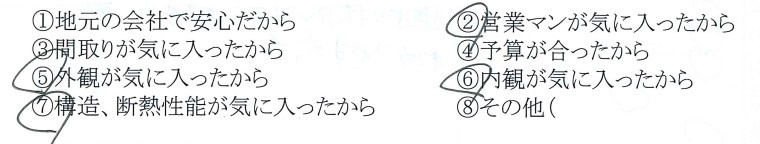 ①地元の会社で安心だから ②営業マンが気に入ったから
③間取りが気に入ったから ④予算が合ったから
⑤外観が気に入ったから ⑥内観が気に入ったから
⑦構造、断熱性能が気に入ったから ⑧その他(